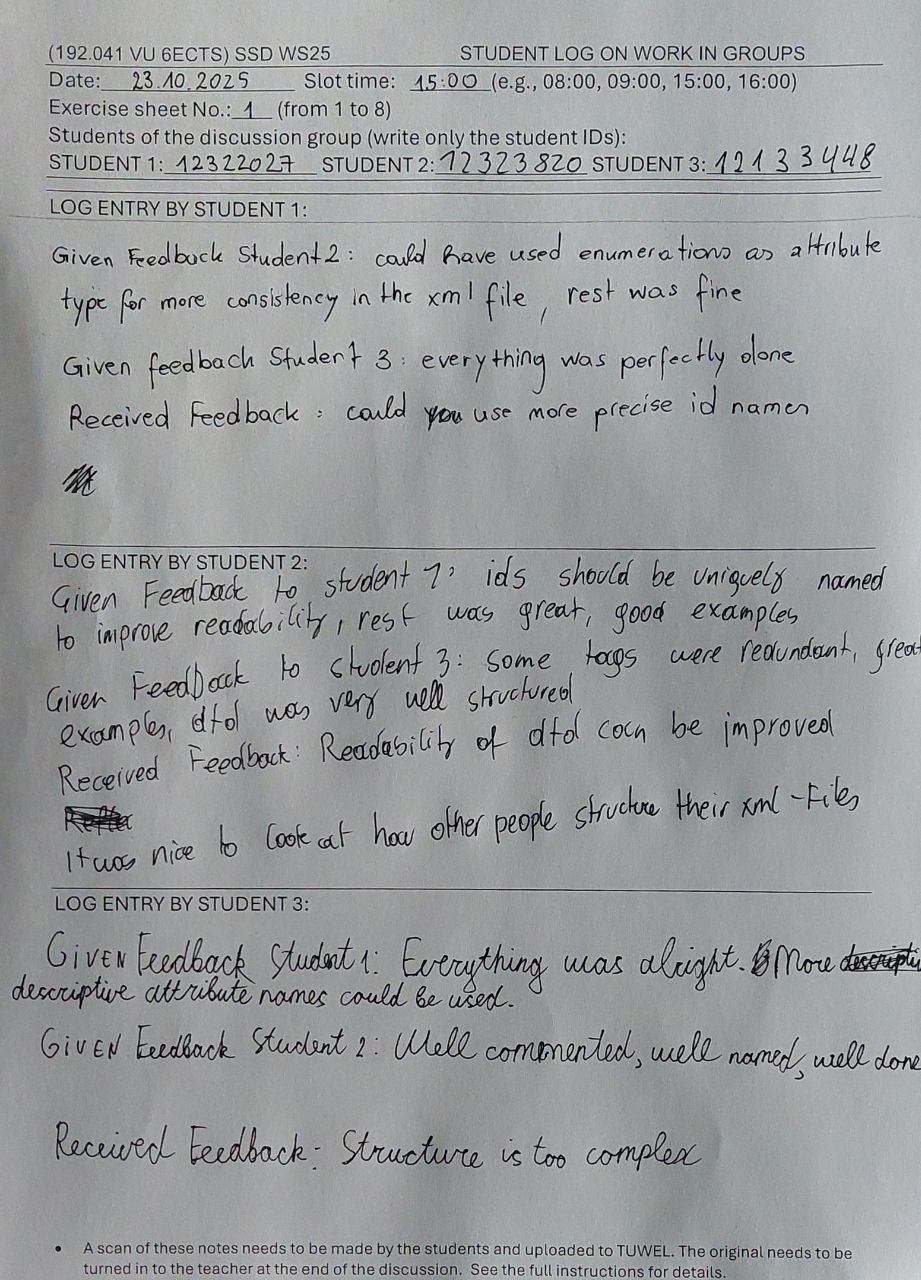 (192.041 VU 6ECTS) SSD WS25 STUDENT LOG ON WORK IN GROUPS
Date: 23.10.2025 Slot time: 15:00 (e.g., 08:00, 09:00, 15:00, 16:00)
Exercise sheet No.: 1 (from 1 to 8)
Students of the discussion group (write only the student IDs):
STUDENT 1: 12322027 STUDENT 2: 12323820 STUDENT 3: 12133448
LOG ENTRY BY STUDENT 1:
Given Feedback Student 2: could have used enumerations as attribute
type for more consistency in the xml file, rest was fine
Given feedback Student 3: everything was perfectly done
Received Feedback: could you use more precise id names
LOG ENTRY BY STUDENT 2:
Given Feedback to student 1: ids should be uniquely named
to improve readability, rest was great, good examples
Given Feedback to student 3: some tags were redundant, great
examples, dtd was very well structured
Received Feedback: Readability of dtd can be improved
It was nice to look at how other people structure their xml-Files
LOG ENTRY BY STUDENT 3:
GIVEN Feedback Student 1: Everything was alright. More
descriptive attribute names could be used.
GIVEN Feedback Student 2: Well commented, well named, well done
Received Feedback: Structure is too complex
• A scan of these notes needs to be made by the students and uploaded to TUWEL. The original needs to be
turned in to the teacher at the end of the discussion. See the full instructions for details.